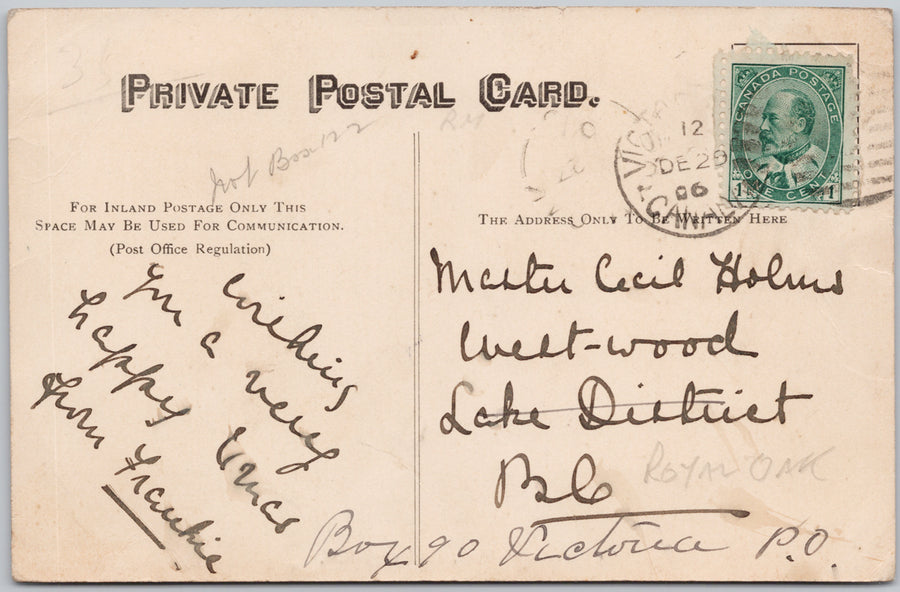 PRIVATE POSTAL CARD.
CANADA POSTAGE
1 ONE CENT 1
VICTORIA
12
DE 28
06
CANADA
not Box 122
FOR INLAND POSTAGE ONLY THIS
SPACE MAY BE USED FOR COMMUNICATION.
(Post Office Regulation)
THE ADDRESS ONLY TO BE WRITTEN HERE
wishing
you a very
happy Xmas
from Frankie
Master Cecil Holms
West-wood
Lake District
BC
ROYAL OAK
Box 90 Victoria P.O.